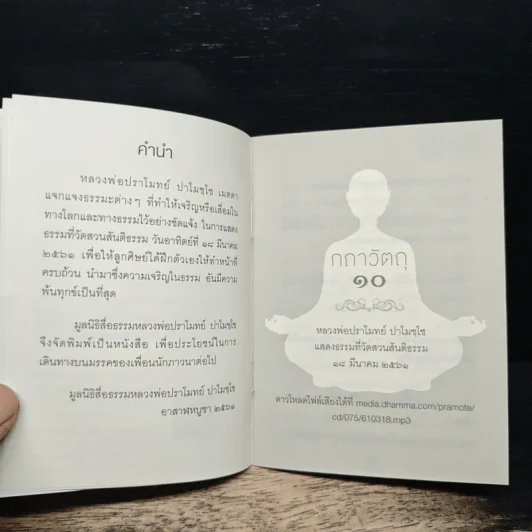 คำนำ
หลวงพ่อปราโมทย์ ปาโมชฺโช เมตตา
แจกแจงธรรมะต่างๆ ที่ทำให้เจริญหรือเสื่อมใน
ทางโลกและทางธรรมไว้อย่างชัดแจ้ง ในการแสดง
ธรรมที่วัดสวนสันติธรรม วันอาทิตย์ที่ ๑๘ มีนาคม
๒๕๖๑ เพื่อให้ลูกศิษย์ได้ฝึกตัวเองให้ทำหน้าที่
ครบถ้วน นำมาซึ่งความเจริญในธรรม อันมีความ
พ้นทุกข์เป็นที่สุด
มูลนิธิสื่อธรรมหลวงพ่อปราโมทย์ ปาโมชฺโช
จึงจัดพิมพ์เป็นหนังสือ เพื่อประโยชน์ในการ
เดินทางบนมรรคของเพื่อนนักภาวนาต่อไป
มูลนิธิสื่อธรรมหลวงพ่อปราโมทย์ ปาโมชฺโช
อาสาฬหบูชา ๒๕๖๑
กถาวัตถุ
๑๐
หลวงพ่อปราโมทย์ ปาโมชฺโช
แสดงธรรมที่วัดสวนสันติธรรม
๑๘ มีนาคม ๒๕๖๑
ดาวโหลดไฟล์เสียงได้ที่ media.dhamma.com/pramote/
cd/075/610318.mp3